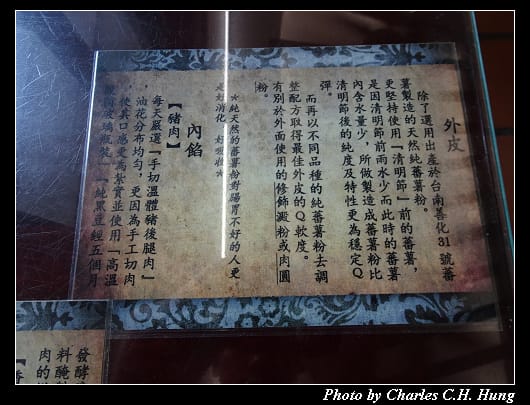 外皮
除了選用出產於台南善化31號蕃
薯製造的天然純蕃薯粉。
更堅持使用『清明節』前的蕃薯，
是因清明節前雨水少而此時的蕃薯
內含水量少，所做製造成蕃薯粉比
清明節後的純度及特性更為穩定Q
彈。
而再以不同品種的純蕃薯粉去調
整配方取得最佳外皮的Q軟度。
有別於外面使用的修飾澱粉或肉圓
粉。
★純天然的蕃薯粉對腸胃不好的人更
是好消化、好吸收★
內餡
【豬肉】
每天嚴選『手切溫體豬後腿肉』
，油花分布均勻，更因為手工切肉
使其口感更為紮實並使用『高溫
玻璃瓶裝』『純黑豆經五個月
發酵
料醃
肉的
Photo by Charles C.H. Hung